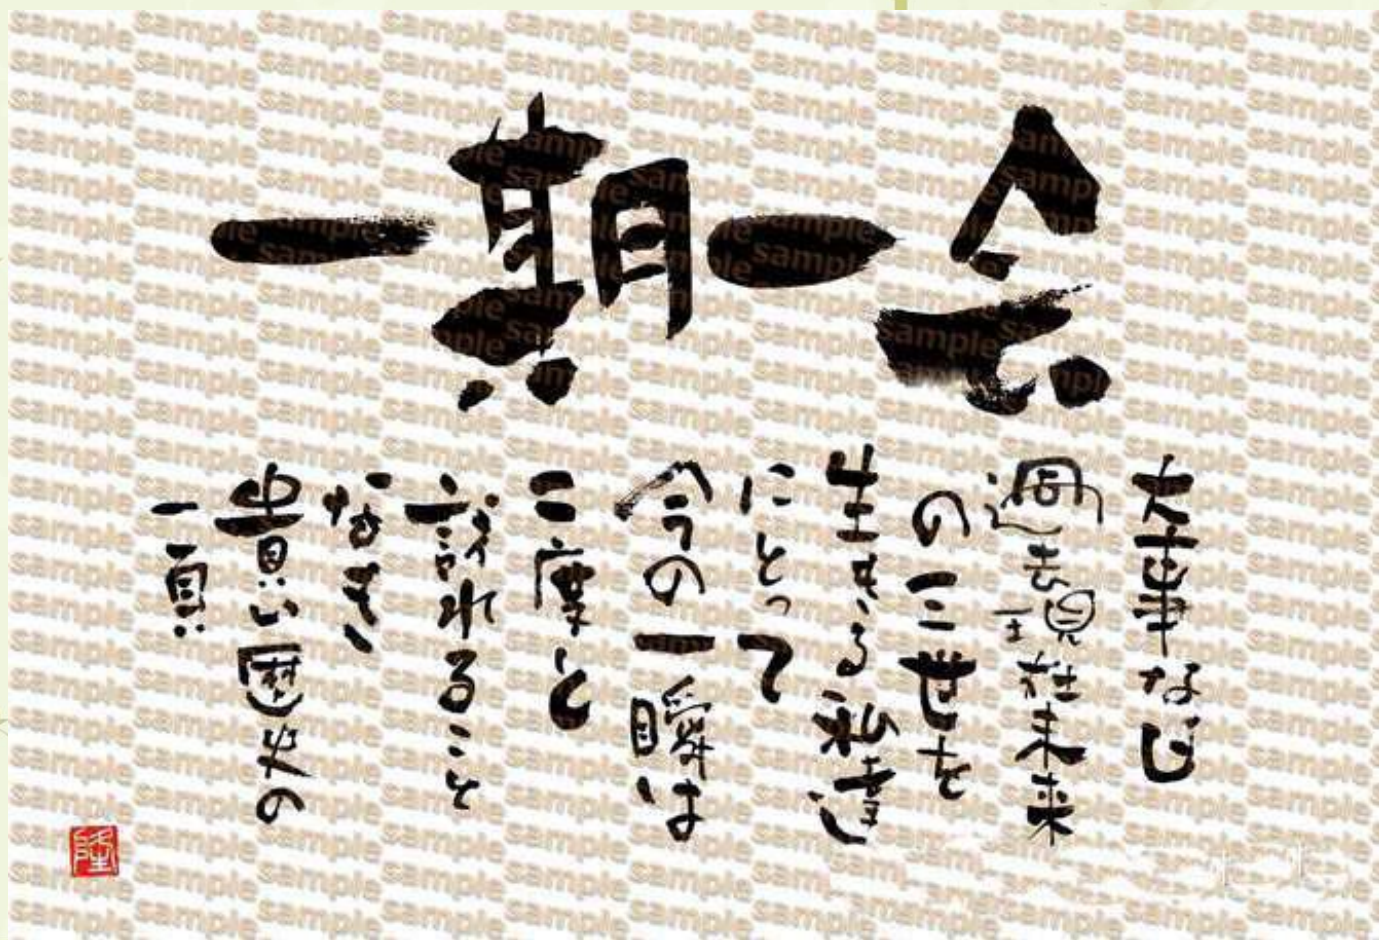 一期一会
大事な
過去現在未来
の三世を
生きる私達
にとって
今の一瞬は
二度と
訪れること
なき
貴い歴史の
一頁
隆